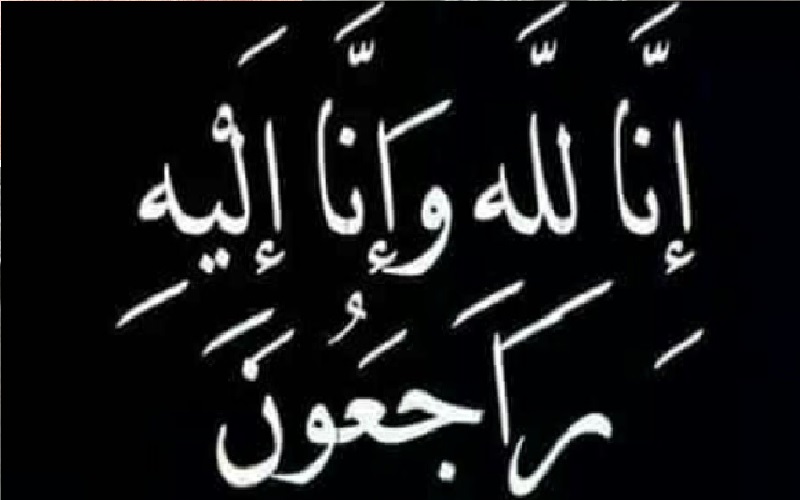 إِنَّا لِلَّهِ وَإِنَّا إِلَيْهِ
رَاجَعُونَ